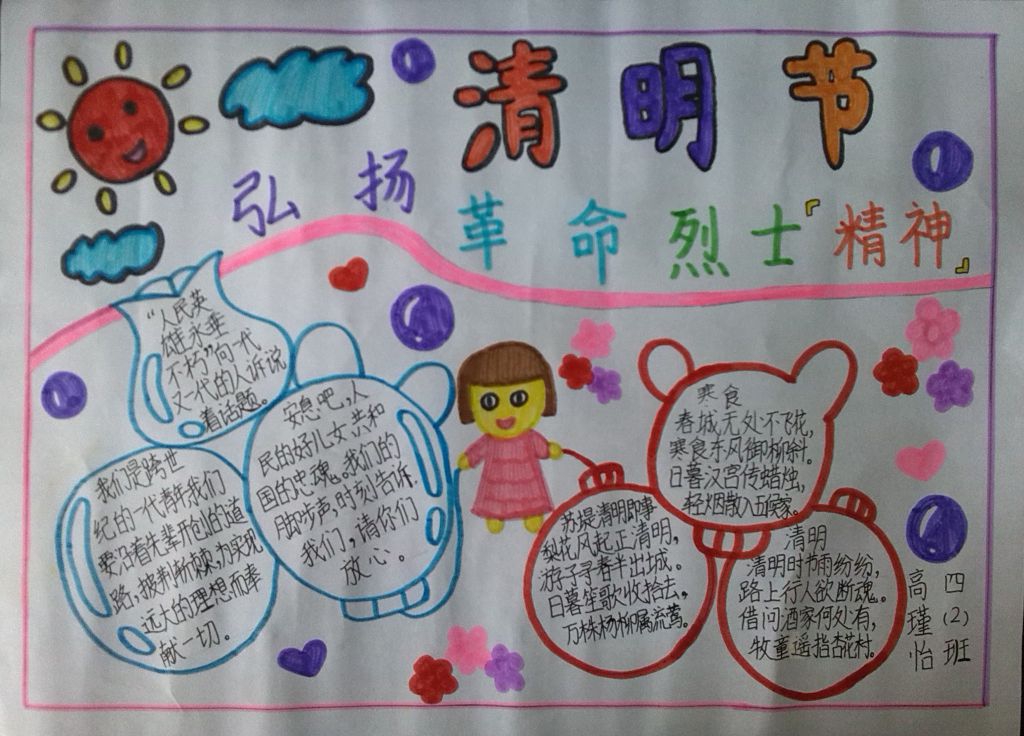 清明节
弘扬
革命烈士『精神』
“人民英
雄永垂
不朽”向一代
又一代的人诉说
着话题。
安息吧，人
民的好儿女，共和
国的忠魂。我们的
脚步声，时刻告诉
我们，请你们
放心。
我们是跨世
纪的一代青年我们
要沿着先辈开创的道
路，披荆斩棘，为实现
远大的理想而奉
献一切。
寒食
春城无处不飞花，
寒食东风御柳斜。
日暮汉宫传蜡烛，
轻烟散入五侯家。
苏堤清明即事
梨花风起正清明，
游子寻春半出城。
日暮笙歌收拾去，
万株杨柳属流莺。
清明
清明时节雨纷纷，
路上行人欲断魂。
借问酒家何处有，
牧童遥指杏花村。
四(2)班
高瑾怡